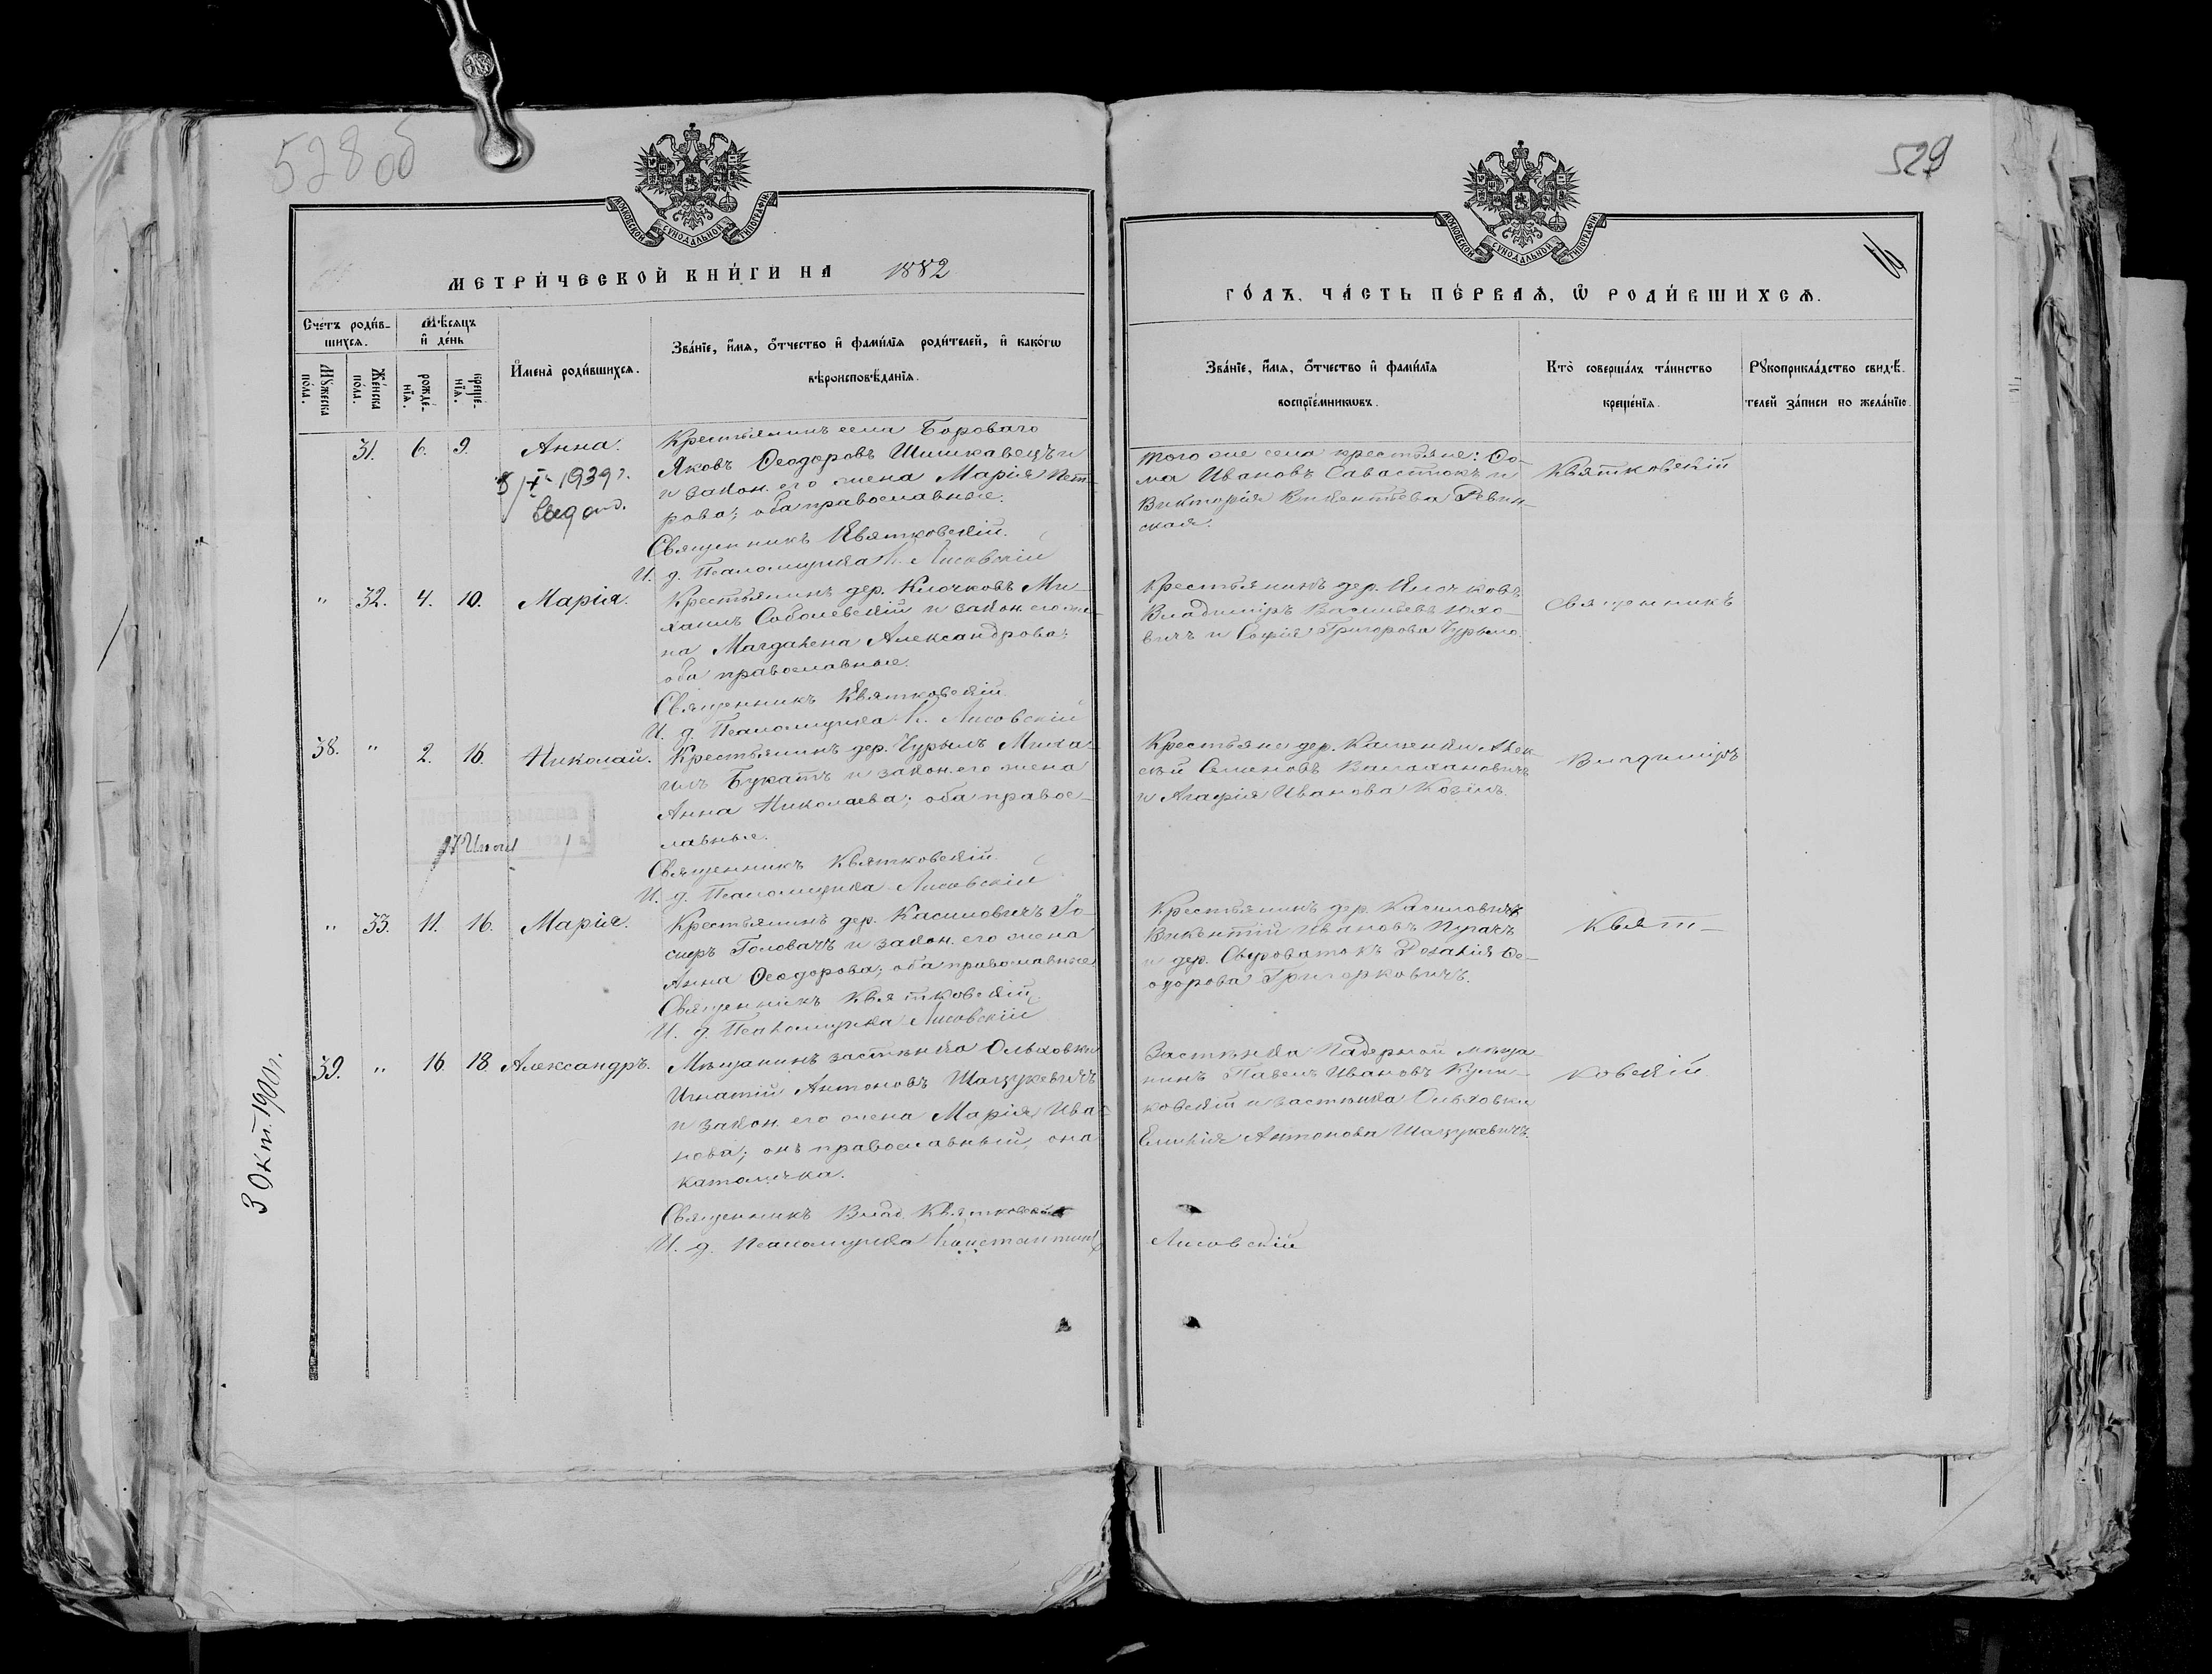 528об
529
МОСКОВСКОЙ СѴНОДАЛЬНОЙ ТИПОГРАФІИ
МОСКОВСКОЙ СѴНОДАЛЬНОЙ ТИПОГРАФІИ
МЕТРИ́ЧЕСКОЙ КНИ́ГИ НА 1882
ГО́ДЪ, ЧА́СТЬ ПЕ́РВАѦ, Ѡ҆ РОДИ́ВШИХСѦ.
Сче́тъ роди́в-
шихсѧ.
Мꙋ́жеска по́ла.
Же́нска по́ла.
Мѣ́сѧцъ
и҆ де́нь
рожде́-
нїѧ.
креще́-
нїѧ.
И҆мена̀ роди́вшихсѧ.
Зва́нїе, и҆́мѧ, ѻ҆́тчество и҆ фами́лїѧ роди́телей, и҆ како́гѡ
вѣроисповѣ́данїѧ.
Зва́нїе, и҆́мѧ, ѻ҆́тчество и҆ фами́лїѧ
воспрїе́мникѡвъ.
Кто̀ соверша́лъ та́инство
креще́нїѧ.
Рꙋкоприкла́дство свидѣ́-
телей за́писи по жела́нїю.
31. 6. 9. Анна.
1939 г.
Крестьянинъ села Бороваго
Яковъ Ѳеодоровъ Шишкавецъ и
и закон. его жена Марія Пет-
рова; оба православные.
Священникъ Квятковскій.
И. д. Псаломщика К. Лисовскій
того же села крестьяне: Ѳо-
ма Ивановъ Савастюкъ и
Викторія Викентьева Ревин-
ская.
Квятковскій
" 32. 4. 10. Марія.
Крестьянинъ дер. Клочковъ Ми-
хаилъ Соболевскій и закон. его же-
на Магдалена Александрова;
оба православные.
Священникъ Квятковскій
И. д. Псаломщика К. Лисовскій
Крестьянинъ дер. Клочковъ
Владиміръ Васильевъ Юхо-
вичъ и Софія Григорова Чурыло.
Священникъ
38. " 2. 16. Николай.
Крестьянинъ дер. Чурылъ Миха-
илъ Букатъ и закон. его жена
Анна Николаева; оба правос-
лавные.
Священникъ Квятковскій.
И. д. Псаломщика Лисовскій
Крестьяне дер. Калюжки Алек-
сѣй Семеновъ
и Агафія Иванова Козелъ.
Владиміръ
" 33. 11. 16. Марія.
Крестьянинъ дер. Касиловичъ Іо-
сифъ Головачъ и закон. его жена
Анна Ѳеодорова; оба православные
Священникъ Квятковскій
И. д. Псаломщика Лисовскій
Крестьянинъ дер. Касиловичъ
Викентій Ивановъ Пугачъ
и дер. Сыроватокъ Розалія Ѳе-
одорова Григорковичъ.
Квят-
3 Окт. 1901 г.
39. " 16. 18. Александръ.
Мѣщанинъ застѣнка Ольховки
Игнатій Антоновъ Шацукевичъ
и закон. его жена Марія Ива-
нова; онъ православный, она
католичка.
Священникъ Влад. Квятковскій
И. д. Псаломщика Константинъ
Застѣнка Падерной мѣща-
нинъ Павелъ Ивановъ Кули-
ковскій и застѣнка Ольховки
Емилія Антонова Шацукевичъ.
Лисовскій
ковскій